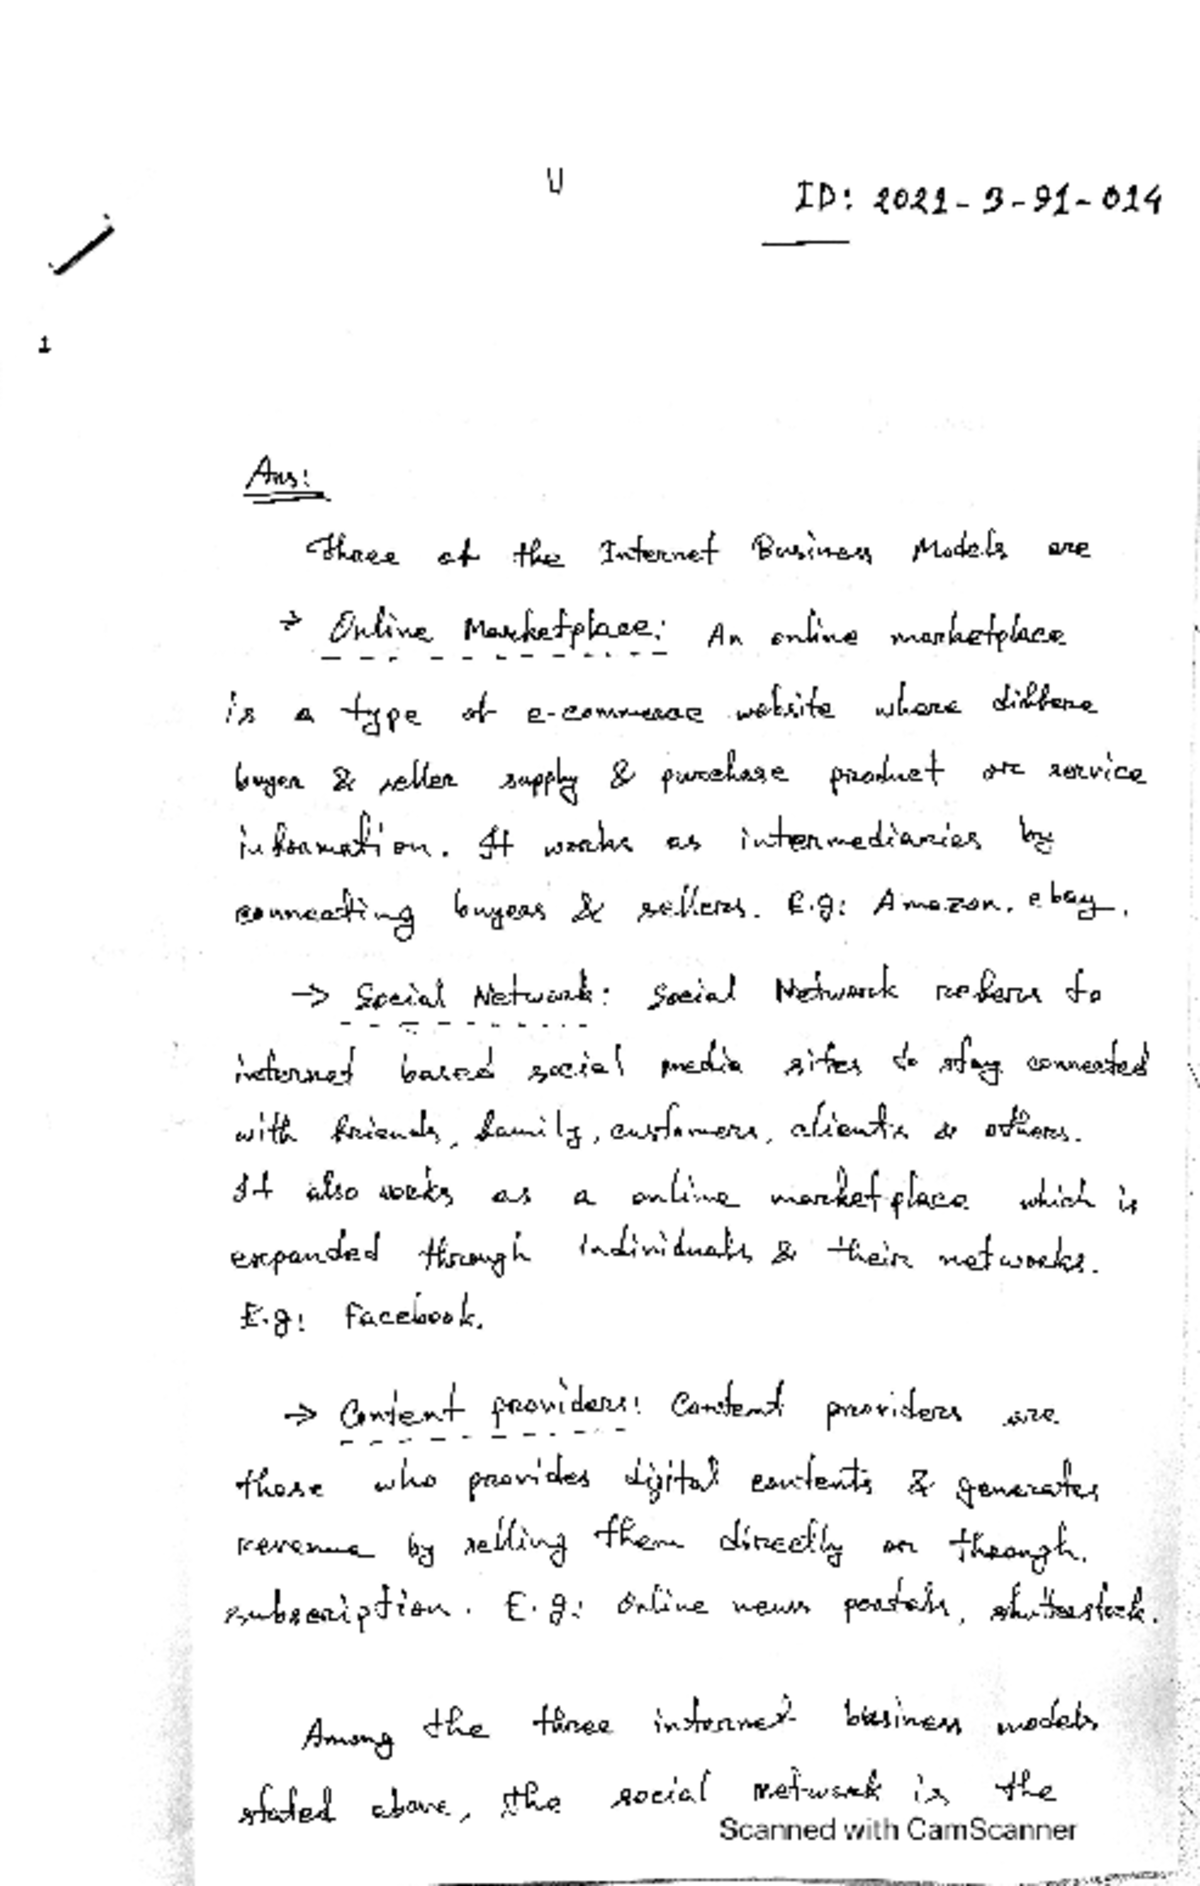 ID: 2021-3-91-014
1
Ans:
Three of the Internet Business Models are
→ Online Marketplace: An online marketplace
is a type of e-commerce website where differe
buyer & seller supply & purchase product or service
information. It works as intermediaries by
connecting buyers & sellers. E.g: Amazon, ebay.
→ Social Network: Social Network refers to
internet based social media sites to stay connected
with friends, family, customers, clients & others.
It also works as a online marketplace which is
expanded through individuals & their networks.
E.g: Facebook.
→ Content providers: Content providers are
those who provides digital contents & generates
revenue by selling them directly or through
subscription. E.g: Online news portals, shutterstock.
Among the three internet business models
stated above, the social network is the
Scanned with CamScanner